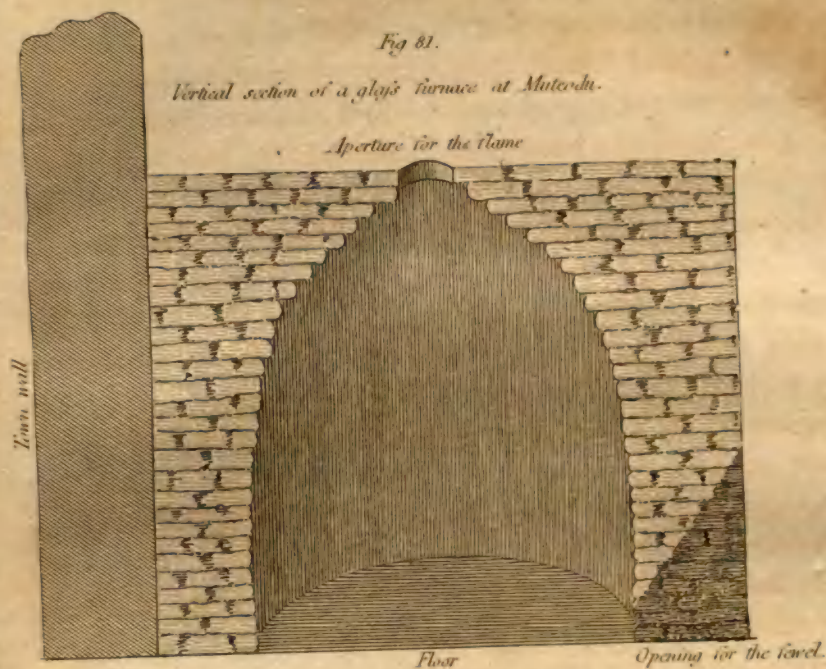 Fig 81.
Vertical section of a glaſs furnace at Muteodu.
Aperture for the flame
Town wall
Floor
Opening for the fewel.